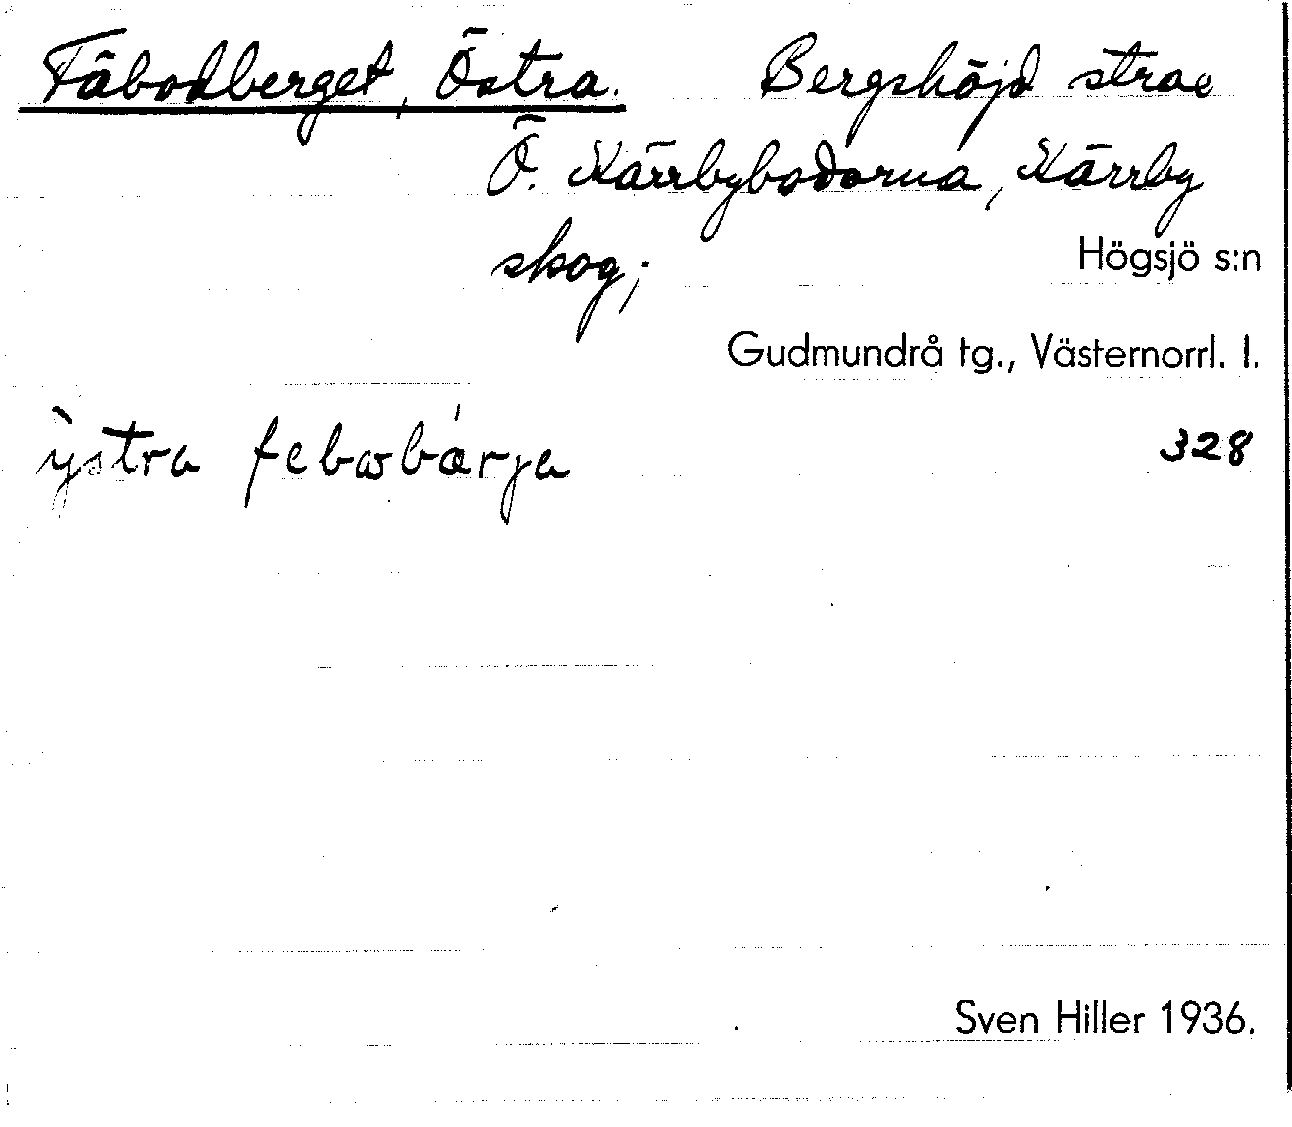 Fäbodberget, Östra. Bergshöjd strax
Ö. Kärrbybodarna, Kärrby
skog;
Högsjö s:n
Gudmundrå tg., Västernorrl. l.
ỳstra febωbárɟa
328
Sven Hiller 1936.